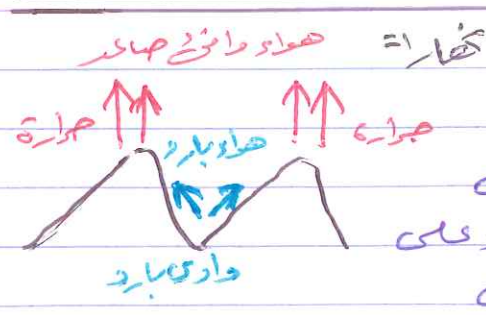 نهارا =
هواء دافئ صاعد
حرارة
حرارة
هواء بارد
على
وادي بارد